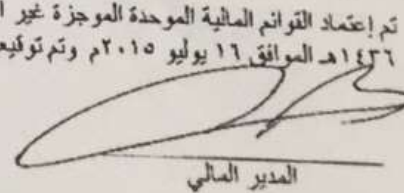 تم إعتماد القوائم المالية الموحدة الموجزة غير
١٤٣٦هـ الموافق ١٦ يوليو ٢٠١٥م وتم توقيع
المدير المالي